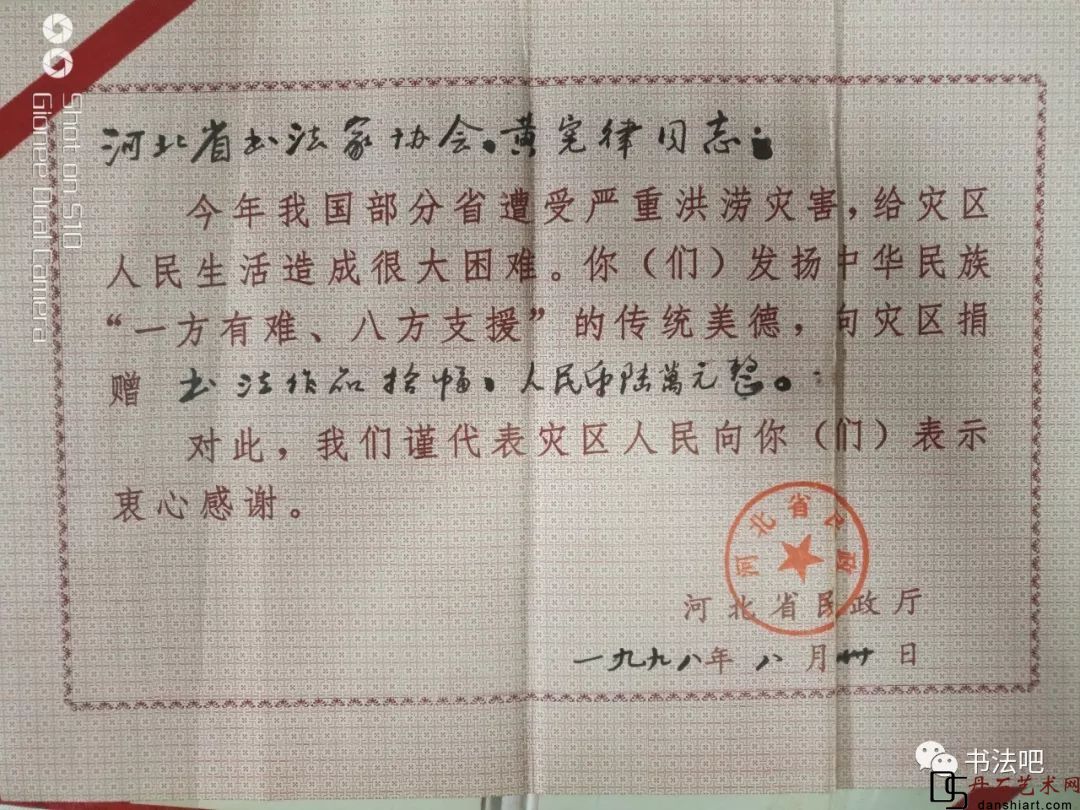 河北省书法家协会、黄宪律同志：
今年我国部分省遭受严重洪涝灾害，给灾区
人民生活造成很大困难。你（们）发扬中华民族
“一方有难、八方支援”的传统美德，向灾区捐
赠 书法作品拾幅、人民币陆萬元整。
对此，我们谨代表灾区人民向你（们）表示
衷心感谢。
河北省民政
河北省民政厅
一九九八年 八 月卅日
Shot on S10
Gionee Dual Camera
书法吧
DS
丹石艺术网
danshiart.com